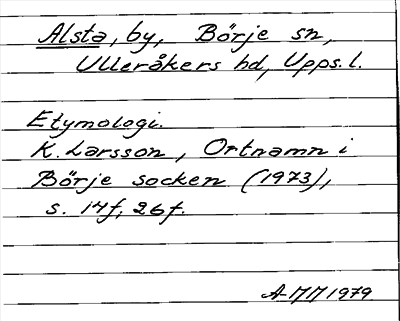 Alsta, by, Börje sn,
Ulleråkers hd, Upps. l.
Etymologi.
K. Larsson, Ortnamn i
Börje socken (1973),
s. 14f, 26f.
1979